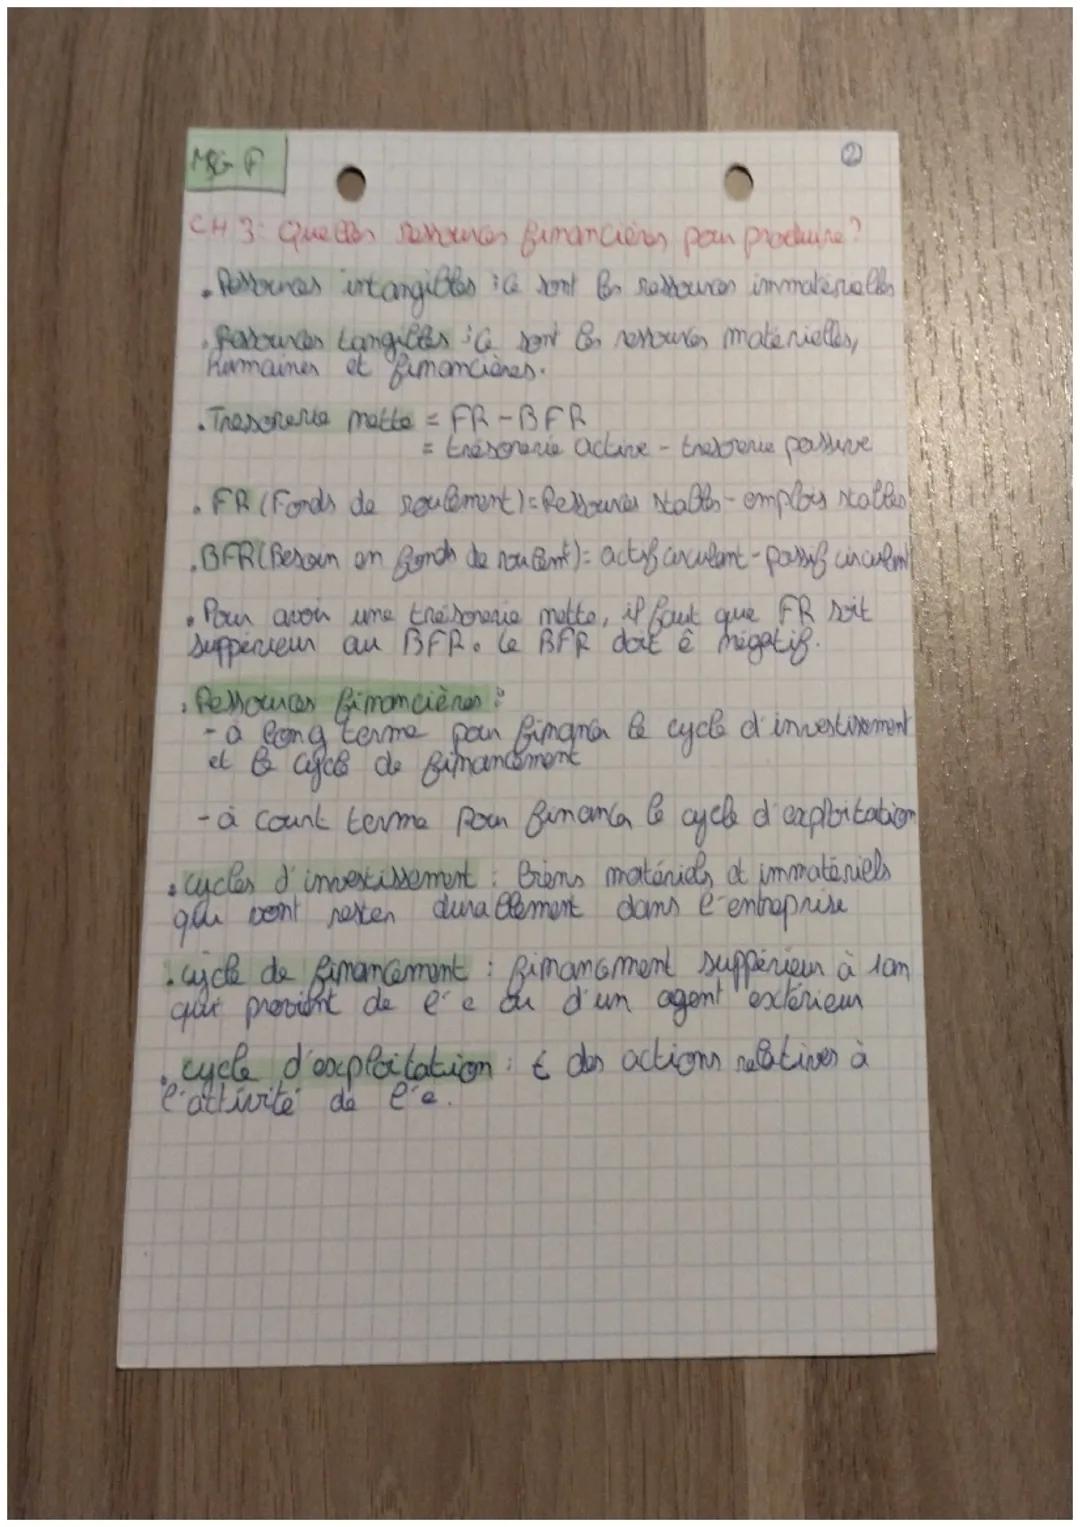 MG F
②
CH 3: Quelles ressources financières pour produire?
• Ressources intangibles : Ce sont les ressources immatérielles
• Ressources tangibles : Ce sont les ressources matérielles,
humaines et financières.
• Tresorerie nette = FR - BFR
= trésorerie active - tresorerie passive
• FR (Fonds de roulement) = Ressources stables - emplois stables
• BFR (Besoin en fonds de roulement) = actif circulant - passif circulant
• Pour avoir une trésorerie nette, il faut que FR soit
suppérieur au BFR. Le BFR doit ê négatif.
• Ressources financières :
- à long terme pour financer le cycle d'investissement
et le cycle de financement
- à court terme pour financer le cycle d'exploitation
• cycles d'investissement : biens matériels et immatériels
qui vont rester durablement dans l'entreprise
• cycle de financement : financement suppérieur à 1an
qui provient de l'e ou d'un agent extérieur
• cycle d'exploitation : des actions relatives à
l'attivité de l'e.